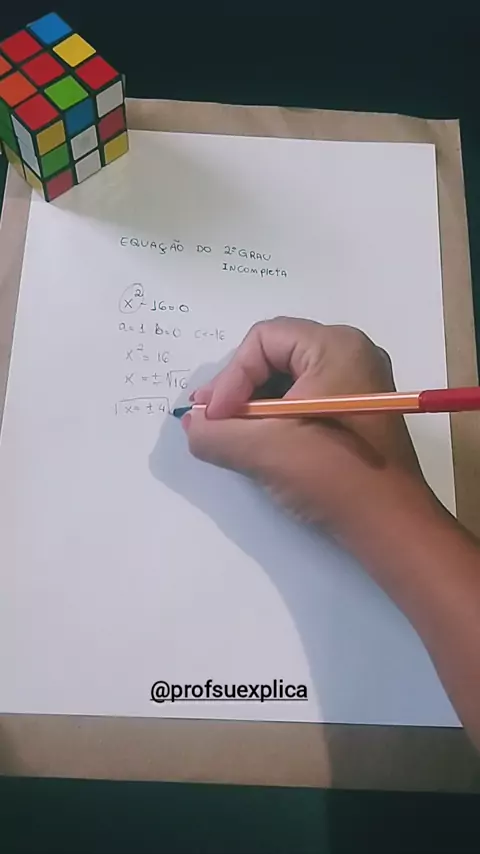 EQUAÇÃO DO 2º GRAU
INCOMPLETA
x² - 16 = 0
a = 1 b = 0 c = -16
x² = 16
x = ± √16
x = ± 4
@profsuexplica